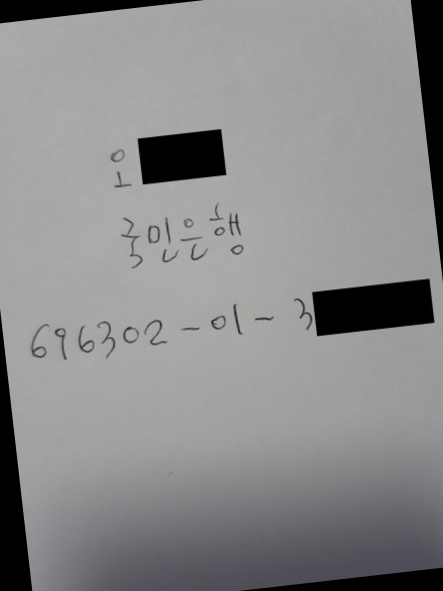 오
국민은행
696302-01-3